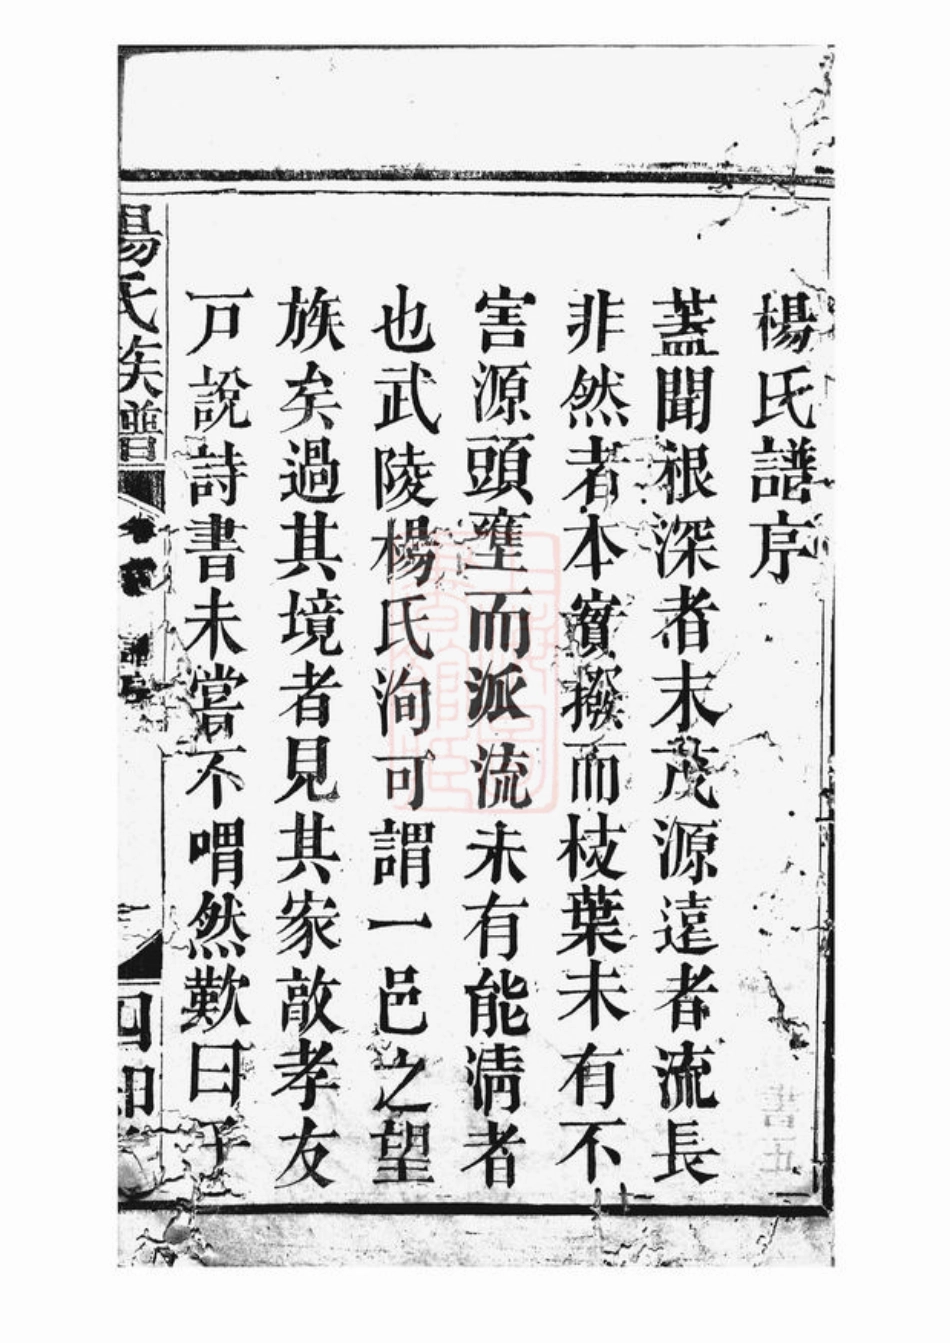 楊氏譜序
蓋聞根深者末茂源遠者流長
非然者本實撥而枝葉未有不
害源頭壅而派流未有能清者
也武陵楊氏洵可謂一邑之望
族矣過其境者見其家敵孝友
戸說詩書未嘗不喟然歎曰于
楊氏族譜
譜序
四知